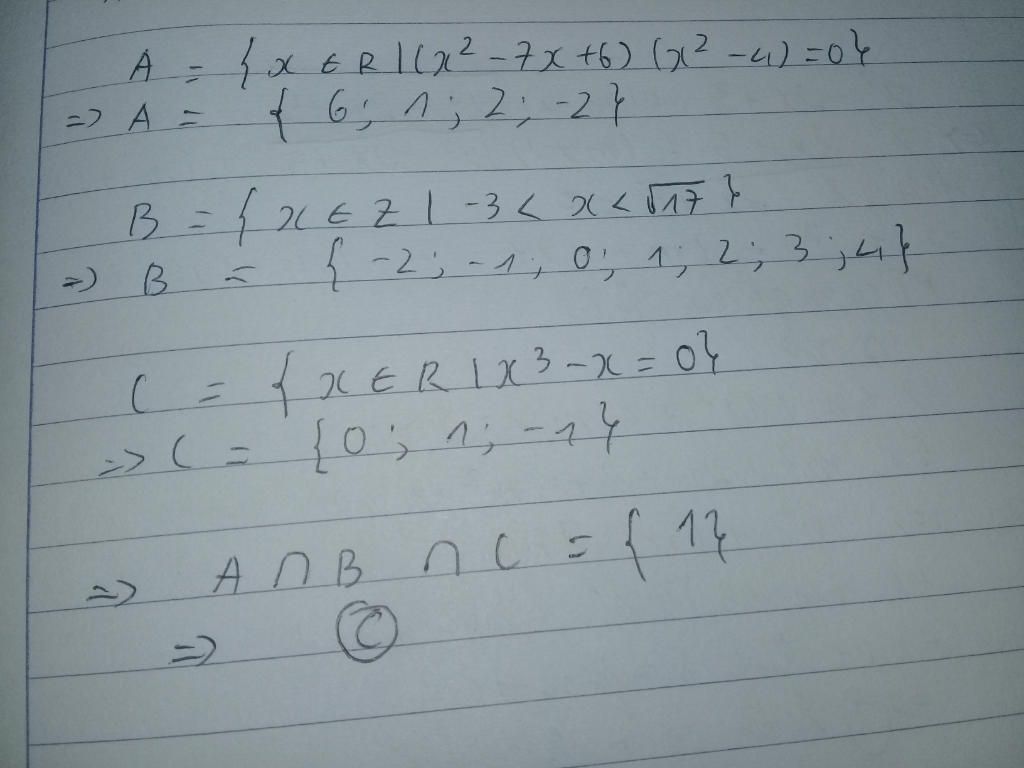 A = { x ∈ R | (x² - 7x + 6) (x² - 4) = 0}
=> A = { 6; 1; 2; -2}
B = { x ∈ Z | -3 < x < √17 }
=> B = { -2; -1; 0; 1; 2; 3; 4}
C = { x ∈ R | x³ - x = 0}
=> C = {0; 1; -1}
=> A ∩ B ∩ C = { 1}
=> C